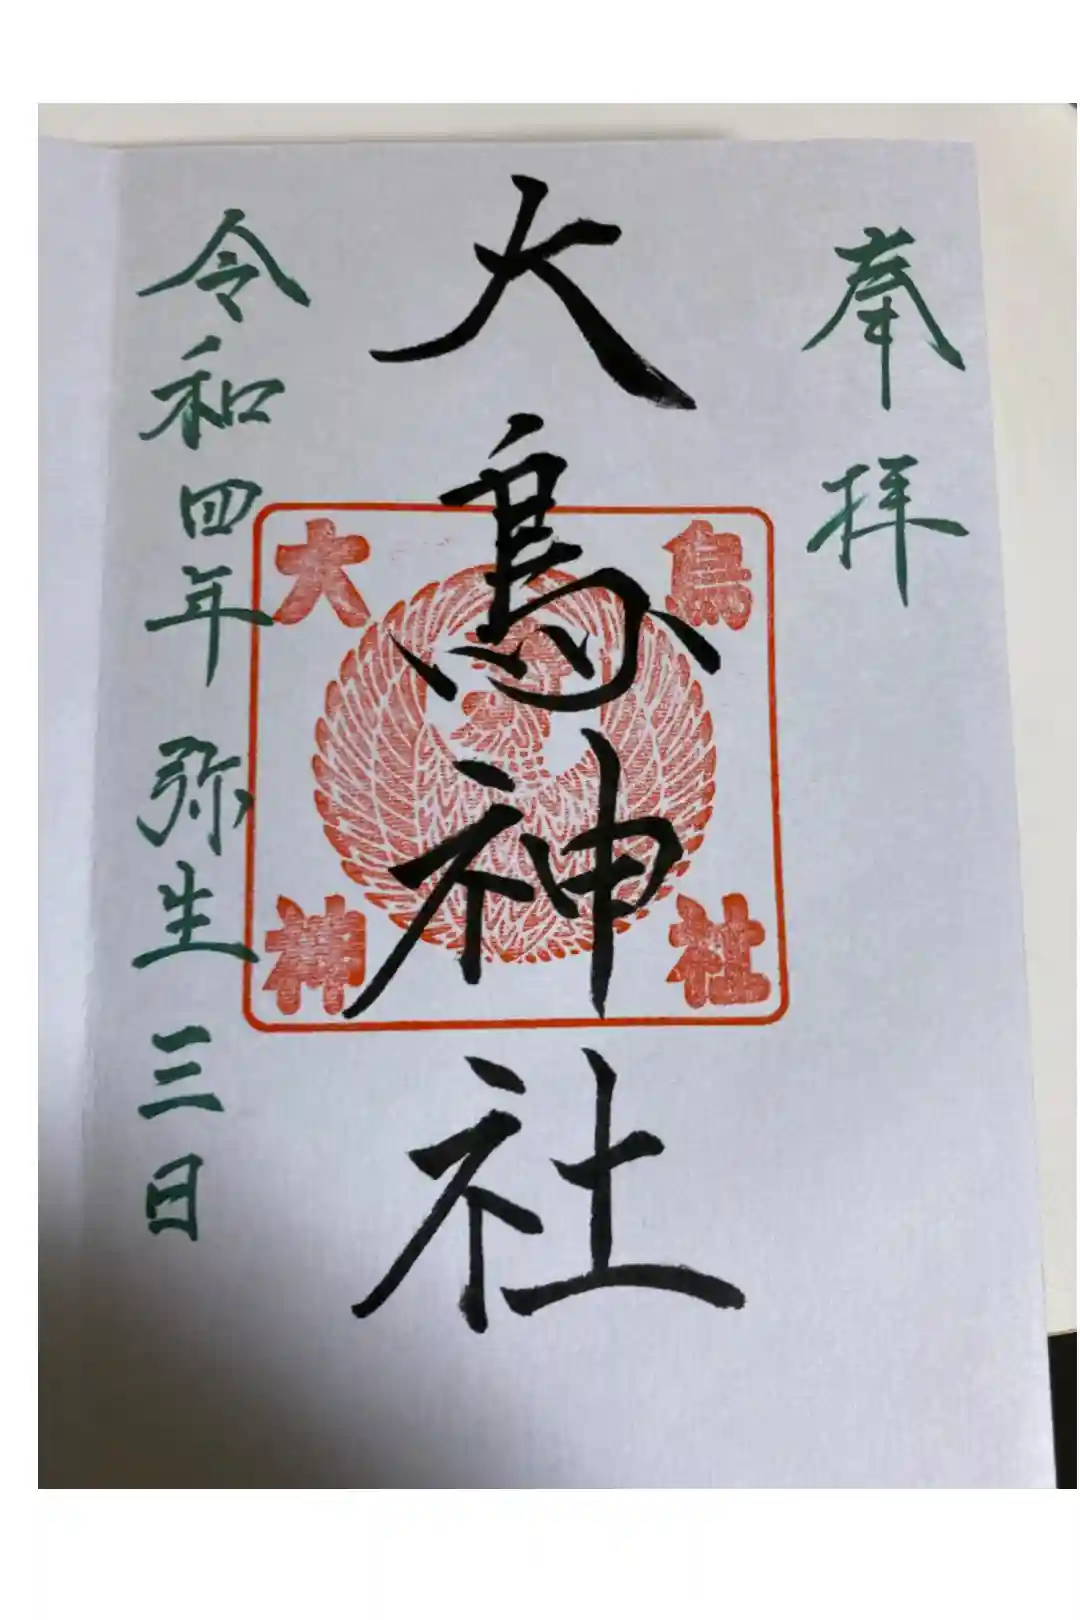 奉拝
大鳥神社
令和四年 弥生 三日
大鳥
神社